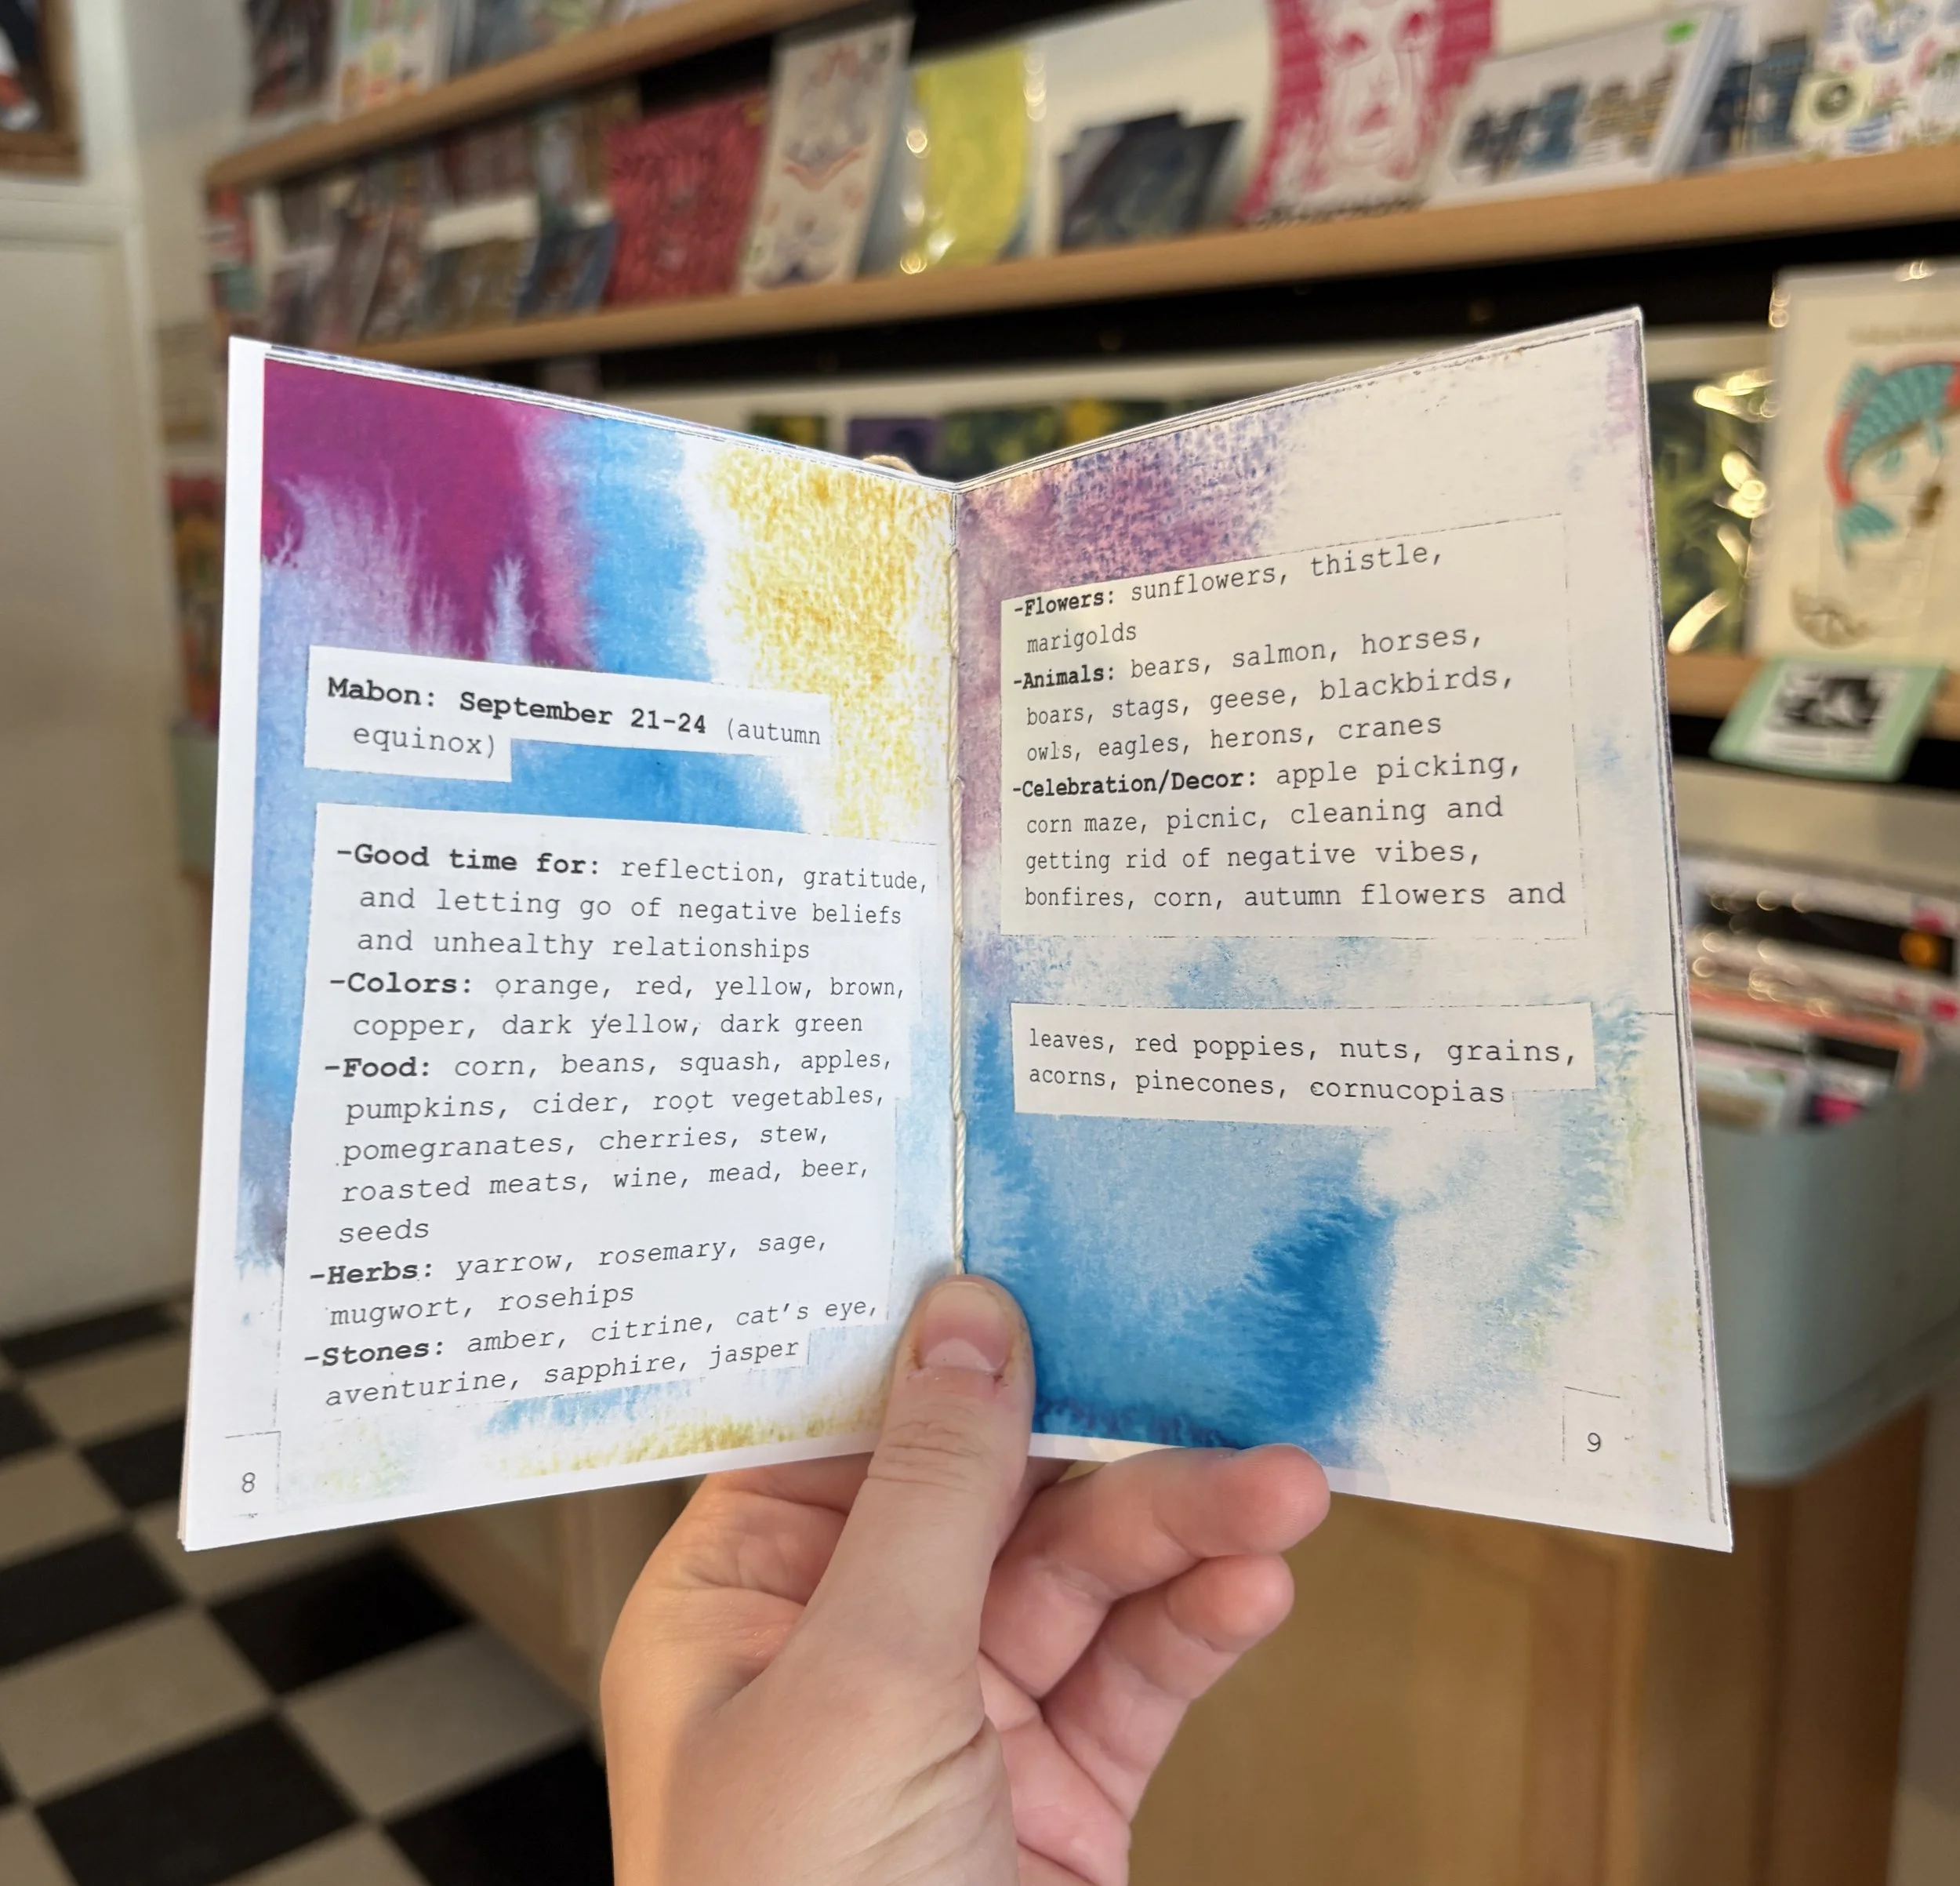 Mabon: September 21-24 (autumn
equinox)
-Good time for: reflection, gratitude,
and letting go of negative beliefs
and unhealthy relationships
-Colors: orange, red, yellow, brown,
copper, dark yellow, dark green
-Food: corn, beans, squash, apples,
pumpkins, cider, root vegetables,
pomegranates, cherries, stew,
roasted meats, wine, mead, beer,
seeds
-Herbs: yarrow, rosemary, sage,
mugwort, rosehips
-Stones: amber, citrine, cat's eye,
aventurine, sapphire, jasper
8
-Flowers: sunflowers, thistle,
marigolds
-Animals: bears, salmon, horses,
boars, stags, geese, blackbirds,
owls, eagles, herons, cranes
-Celebration/Decor: apple picking,
corn maze, picnic, cleaning and
getting rid of negative vibes,
bonfires, corn, autumn flowers and
leaves, red poppies, nuts, grains,
acorns, pinecones, cornucopias
9